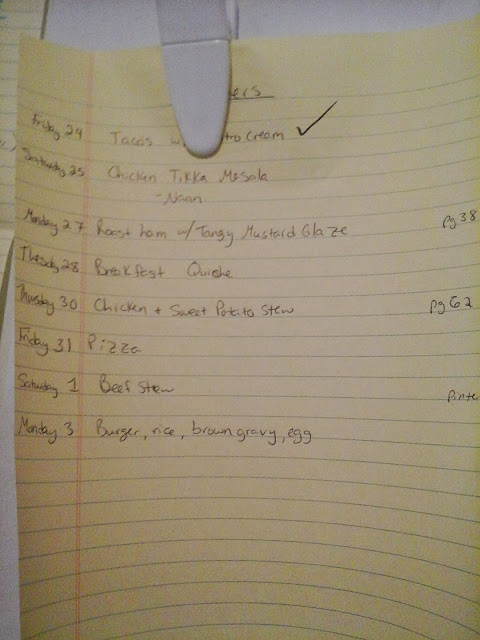 ers
Friday 24 Tacos w tro Cream ✓
Saturday 25 Chicken Tikka Masala
- Naan
Monday 27 Roast ham w/ Tangy Mustard Glaze pg 38
Tuesday 28 Breakfast Quiche
Thursday 30 Chicken + Sweet Potato Stew pg 62
Friday 31 Pizza
Saturday 1 Beef Stew Pinte
Monday 3 Burger, rice, brown gravy, egg